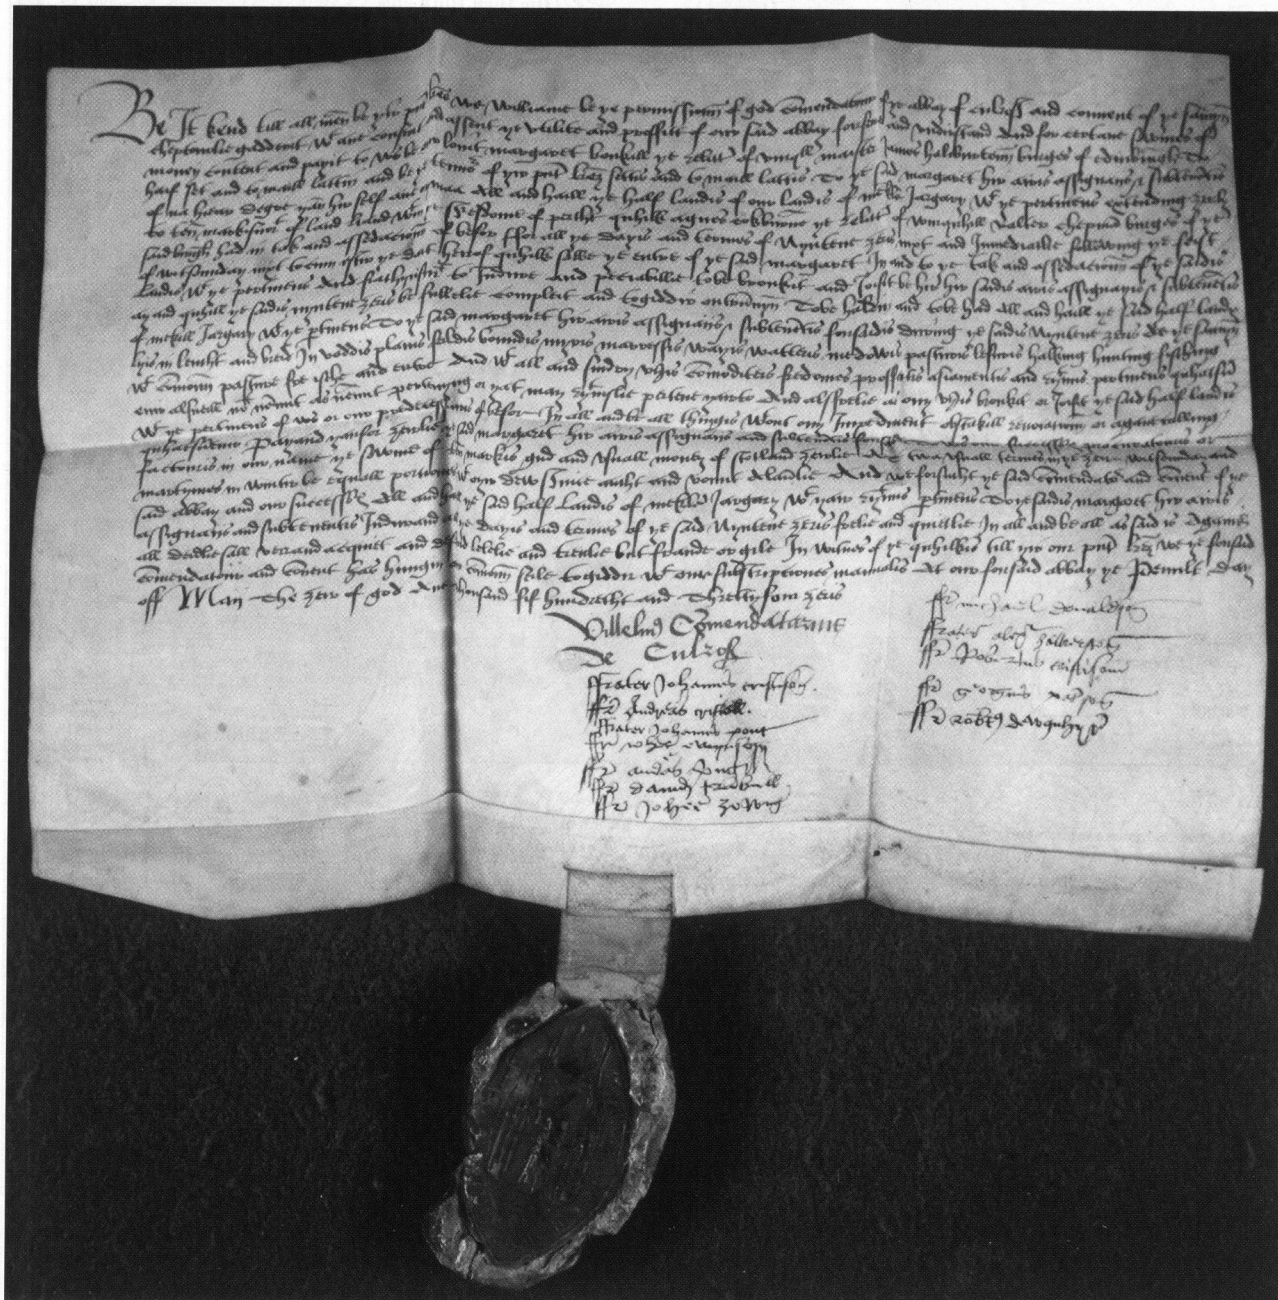 Be It kend till all men be yir pnt lrez We Williame be ye permissioun of god comendatour of ye abbay of culross and convent of ye samyn
cheptourlie gadderit Wt ane consent and assent ye vtilite and proffitt of our said abbay forsene and vnderstand And for certane sowmes of
money content and payit to ws be our lovit margaret bonkill ye relict of vmqll maister James halkerstoun burges of edinburgh To
haif set and to maill lattin and be ye tennor of yir pnt lrez settis and to maill lattis To ye said margaret hir airis assignais & subtennentis
of na hiear degre yan hir self ane or maa All and haill ye half landis of our landis of mekle Jargary Wt ye pertinens extending zerlie
to ten markis of land liand Wt in ye Srefdome of perth quhilk agnes cokburne ye relict of umquhill Valter chepman burges of ye
said burgh had in tak and assedacioun of befor ffor all ye dayis and termes of Nyntene zeris nixt and Immediatlie following ye feist
of witsunday nixt tocum eftir ye dat heirof quhilk salbe ye entre of ye said margaret In and to ye tak and assedacioun of ye saidis
landis Wt ye pertinens And frathynfurt to Indure and peceabillie tobe broukit and Joisit be hir hir saidis airis assignais & subtennentis
ay and quhill ye saidis nyntene zeris be fullelie compleit and togiddir outrunnyn Tobe haldin and tobe had All and haill ye said half landis
of mekill Jargary Wt ye ptinens To ye said margaret hir airis assignais & subtenentis forsaidis during ye saidis Nyntene zeris As ye samyn
lyis in lenth and breid In woddis planis feildis boundis myris marresis wayis watteris medowis pasturis lesuris halking hunting fisching
Wt comoun pasture fre ische and entre And Wt all and sindry vyis comoditeis fredomes proffitis asiamentis and rytuis pertinens quhatsuer
als weill nt nemit as nemit pertening or yat may rytuislie pertene yairto And alsfrelie as ony vyis broukit or Joisit ye said half landis
Wt ye pertinens of ws or our predecessouris of befor In all and be all thingis Wout ony Impediment obstakill revocacioun or aganecalling
quhatsumeuer Payand yairfor zeirlie ye said margaret hir airis assignais and subtenentis forsaidis to ws our successouris
factouris in our name ye sowme of markis gud and vsuall money of scotland zerlie At twa vsuall termes in ye zeir witsonday and
martymes in winter be equall portionis Wt our dew seruice aucht and wont Alanerlie And we forsuth ye said comendator and convent of ye
said abbay and our successouris All and haill ye said half landis of mekle Jargary Wt yair rytuis ptinens To ye saidis margaret hir airis
assignais and subtenentis Indurand all ye dayis and termes of ye said Nyntene zeris frelie and quietlie In all and be all as said is Aganis
all deidlie sall verrand acquiet and defend lelelie and trewlie but fraude or gile In witnes of ye quhilkis till yir our pnt lrez we ye forsaid
comendatour and convent hes hungin our comoun seile togiddir Wt our subscripciones manualis At our forsaid abbay ye Penult day
off May The zeir of god Ane thousand fif hundretht and Thretty four zeris
Villelmus Comendatarius
De Culross
ffrater Johannes cristisone
ffr Andreas cristell
ffrater Johannes pont
ffr Johes
ffr andreas
ffr david
ffr Johes zowng
ffr michael donaldson
ffrater alexr
ffr Robertus cristisone
ffr georgius
ffr robts